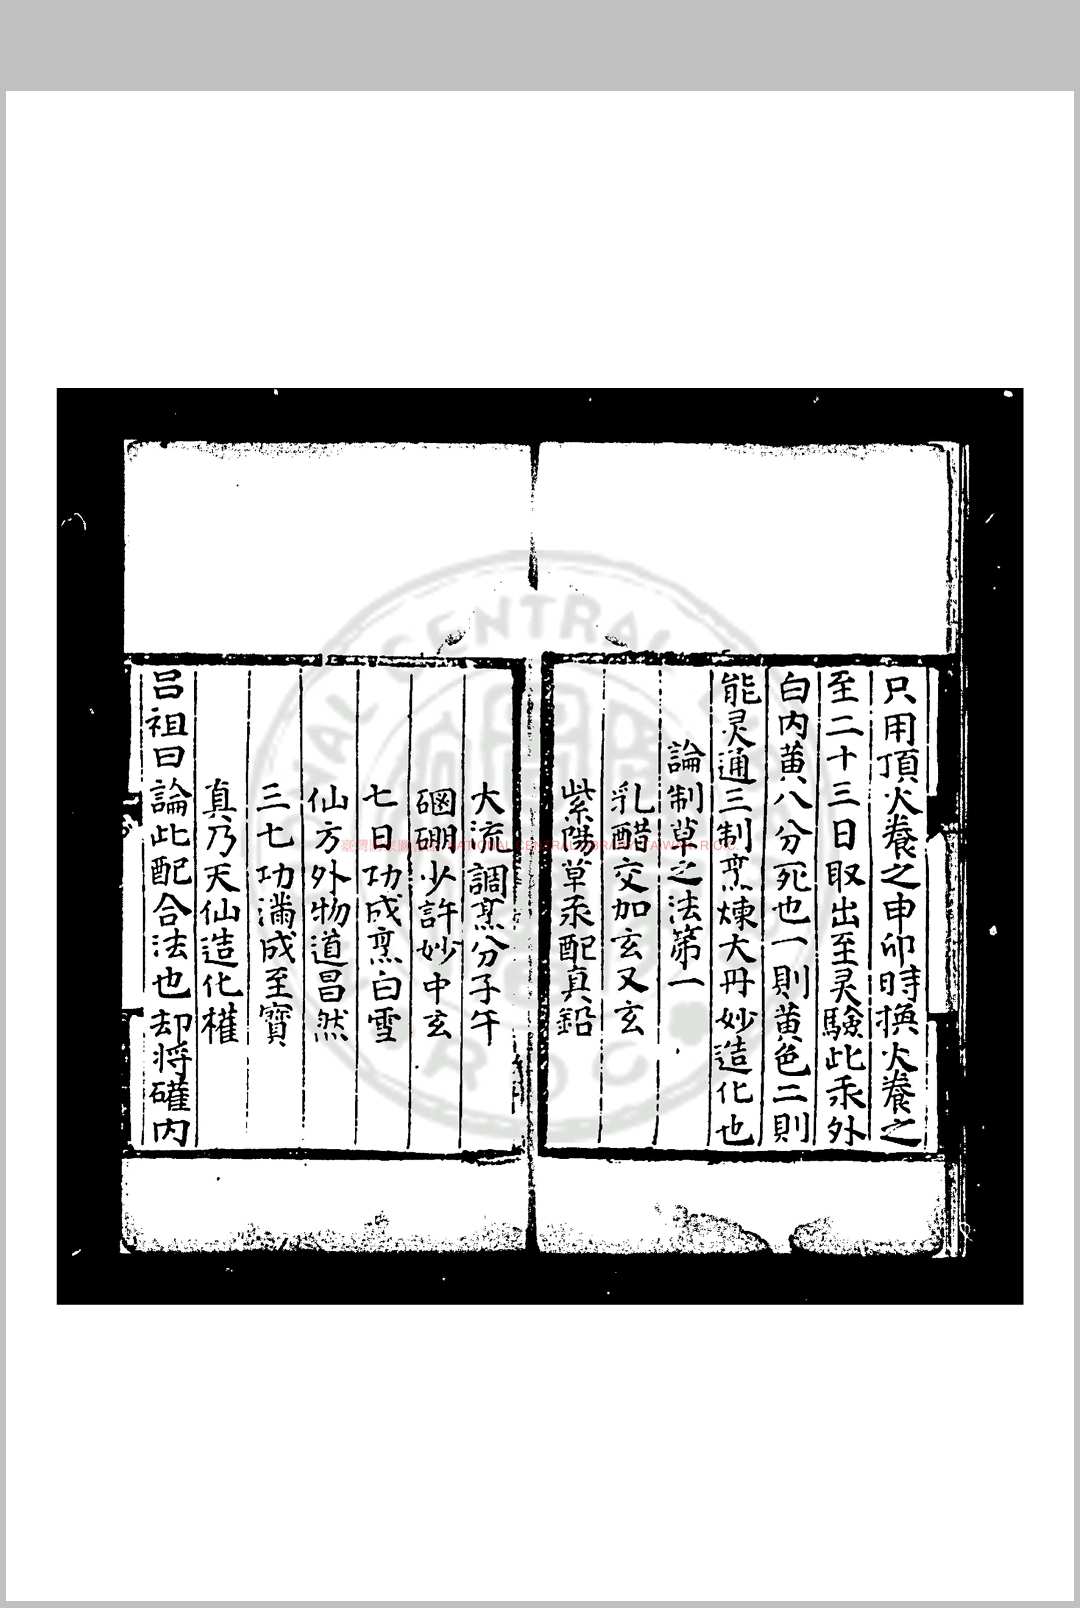 只用頂火養之申卯時撰火養之
至二十三日取出至灵驗此汞外
白内黄八分死也一則黄色二則
能灵通三制烹煉大丹妙造化也
論制草之法第一
乳醋交加玄又玄
紫陽草汞配真鉛
大流調烹分子午
硇硼少許妙中玄
七日功成烹白雪
仙方外物道昌然
三七功满成至寶
真乃天仙造化權
吕祖曰論此配合法也却将礶内
NATIONAL CENTRAL LIBRARY, TAIWAN, R.O.C.